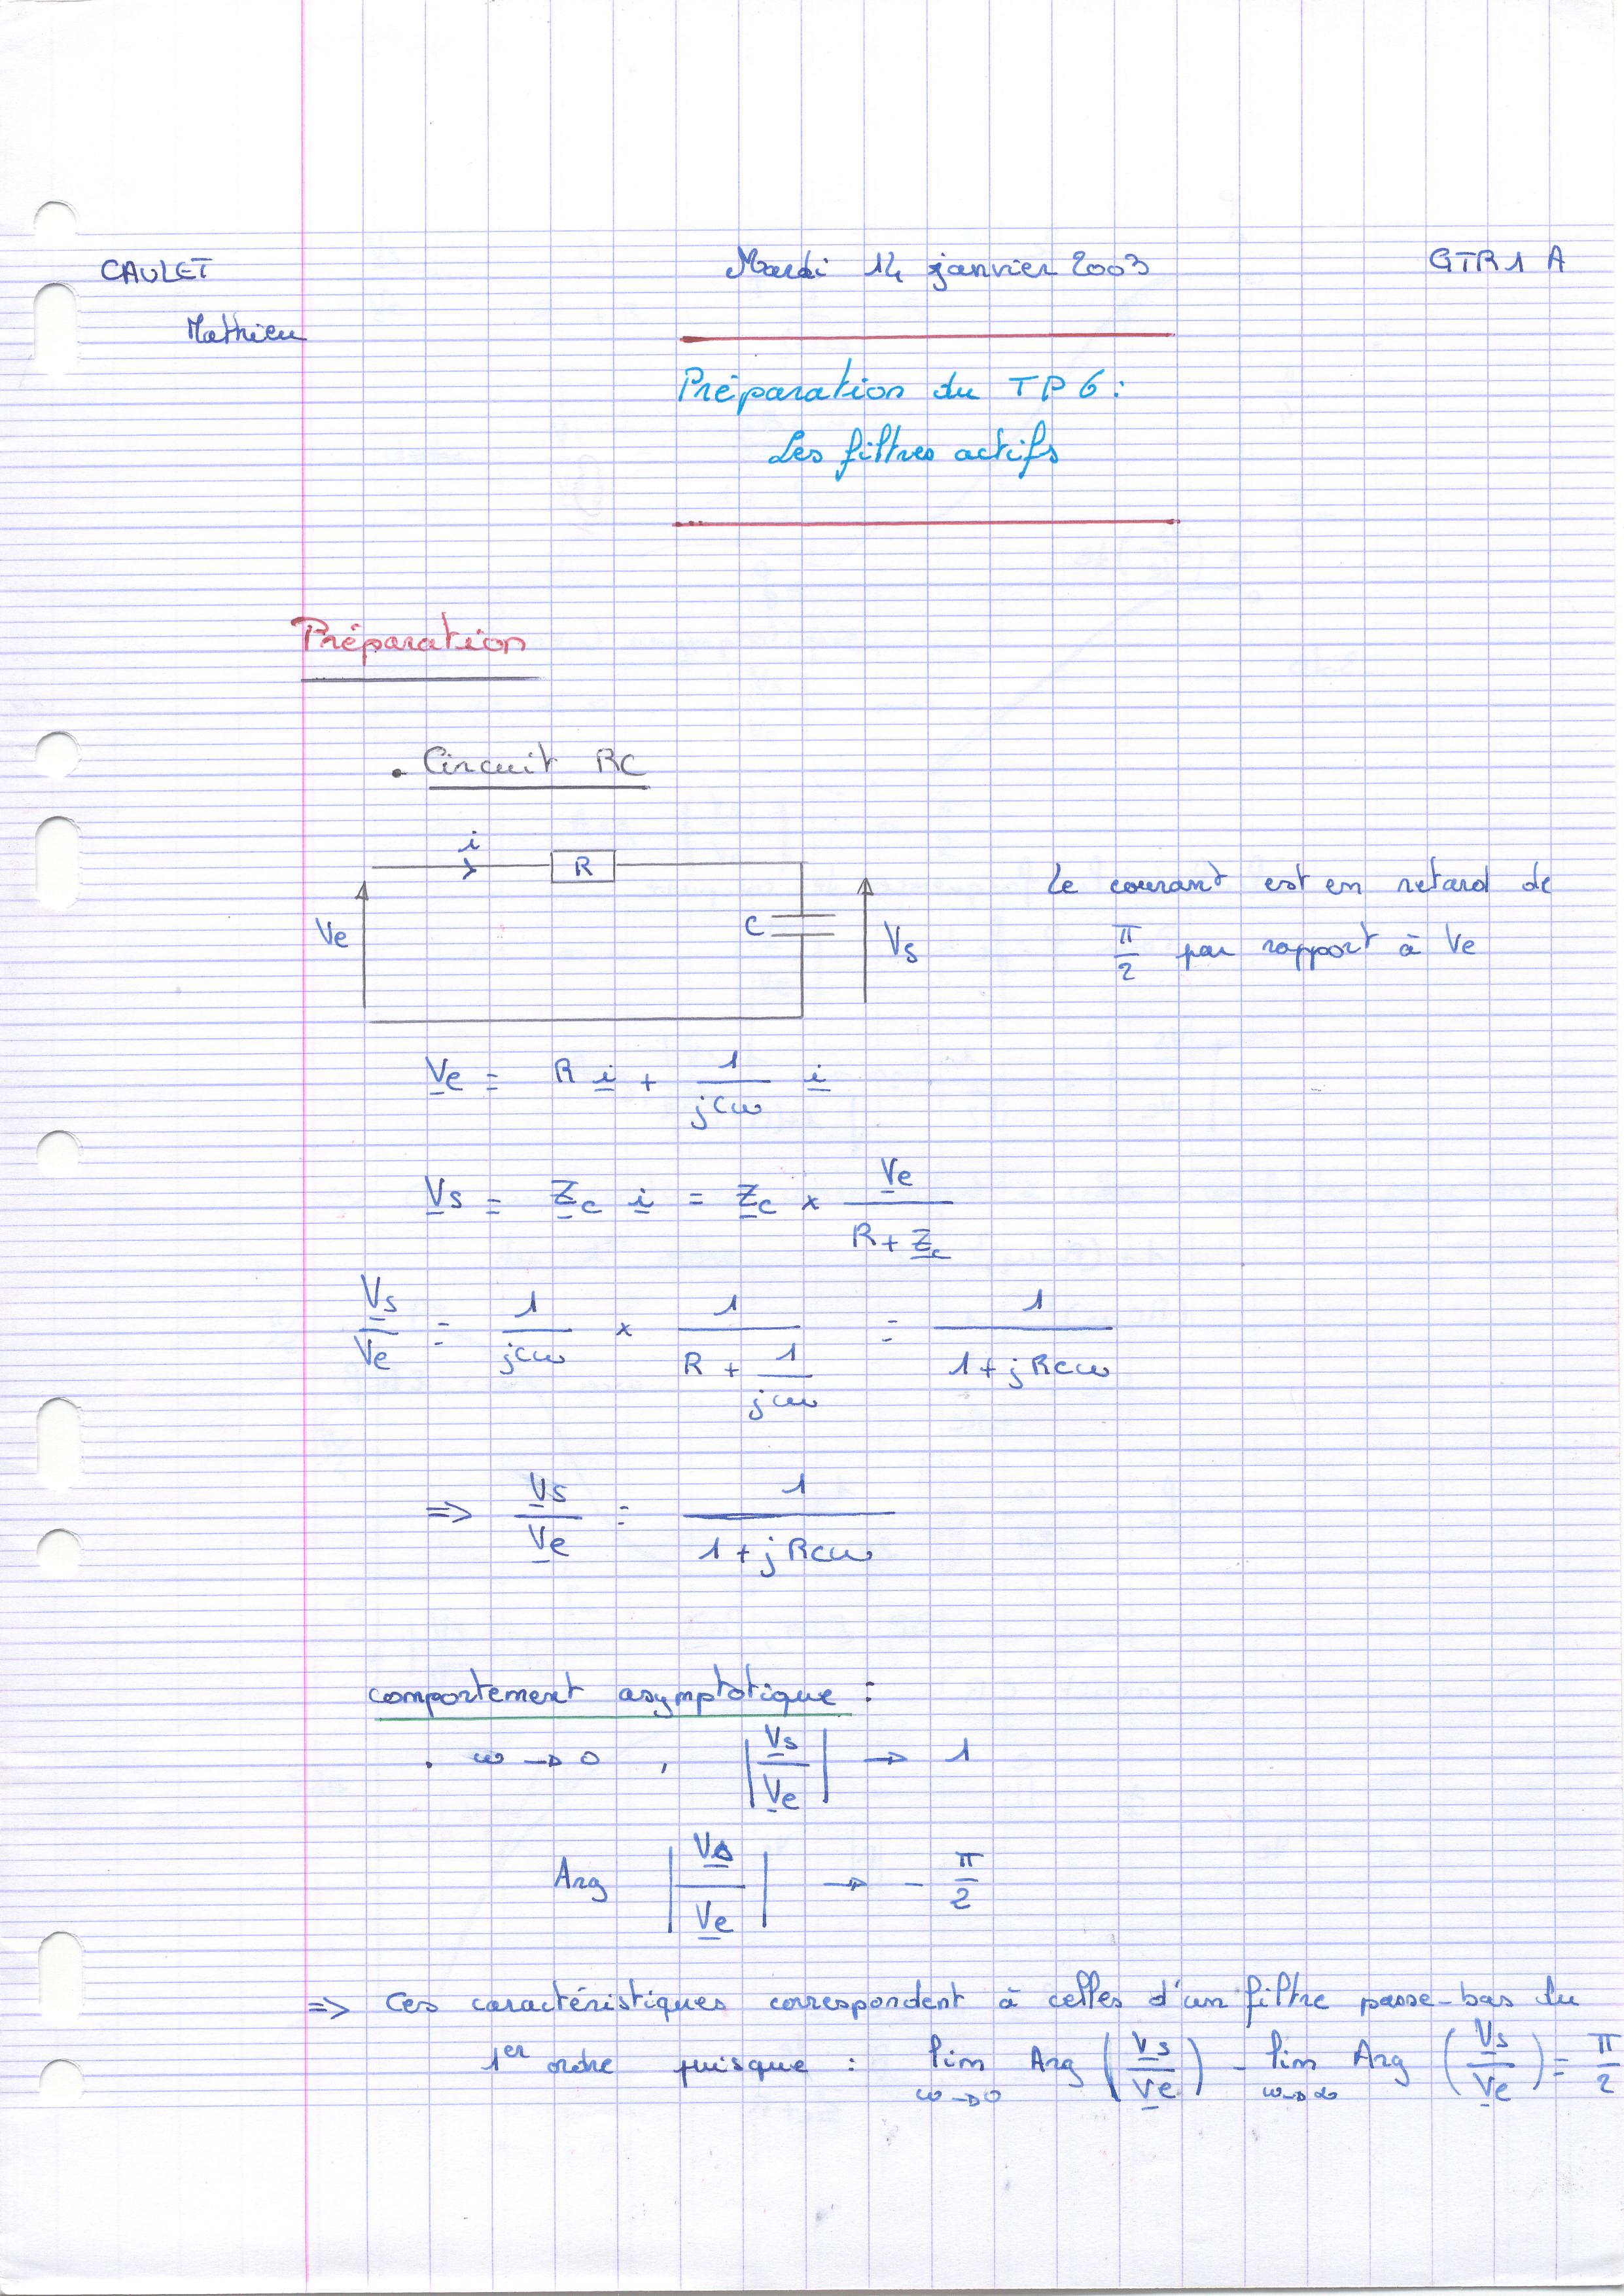 CAULET
Mathieu
Mardi 14 janvier 2003
GTR1 A
Préparation du TP 6 :
Les filtres actifs
Préparation
. Circuit RC
i
R
Ve
C
Vs
Le courant est en retard de
π/2 par rapport à Ve
Ve = R i + 1/(jCω) i
Vs = Zc i = Zc × Ve/(R + Zc)
Vs/Ve = 1/(jCω) × 1/(R + 1/(jCω)) = 1/(1 + jRCω)
=> Vs/Ve = 1/(1 + jRCω)
comportement asymptotique :
. ω → 0 , |Vs/Ve| → 1
Arg |Vs/Ve| → - π/2
=> Ces caractéristiques correspondent à celles d'un filtre passe-bas du
1er ordre puisque : lim ω→0 Arg (Vs/Ve) - lim ω→∞ Arg (Vs/Ve) = π/2